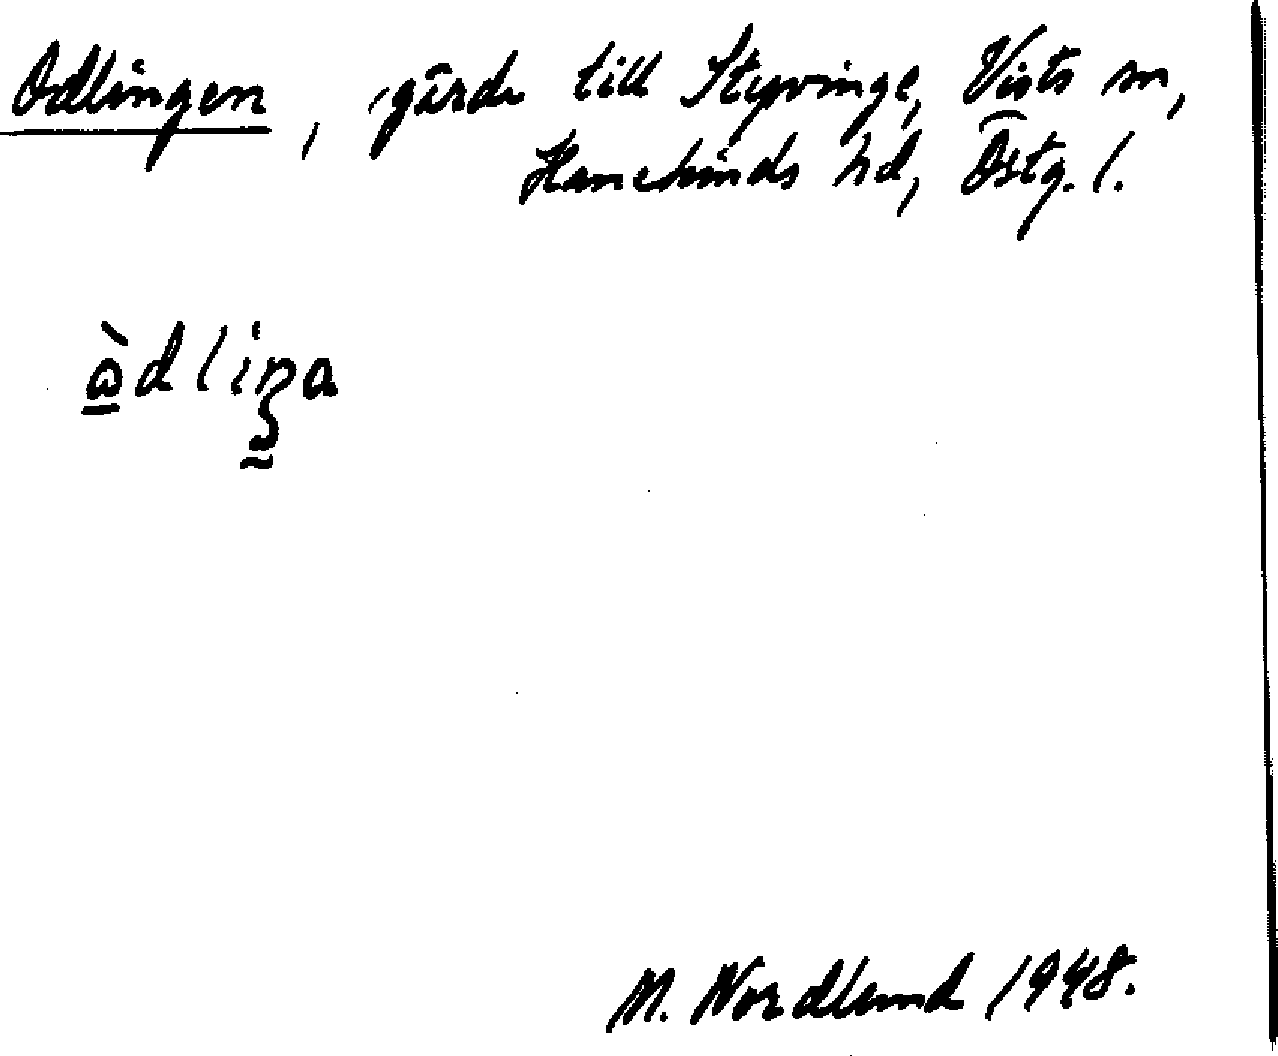 Odlingen, gärde till Styvinge, Vists sn,
Hanekinds hd, Östg. l.
òdliŋa
M. Nordlund 1948.